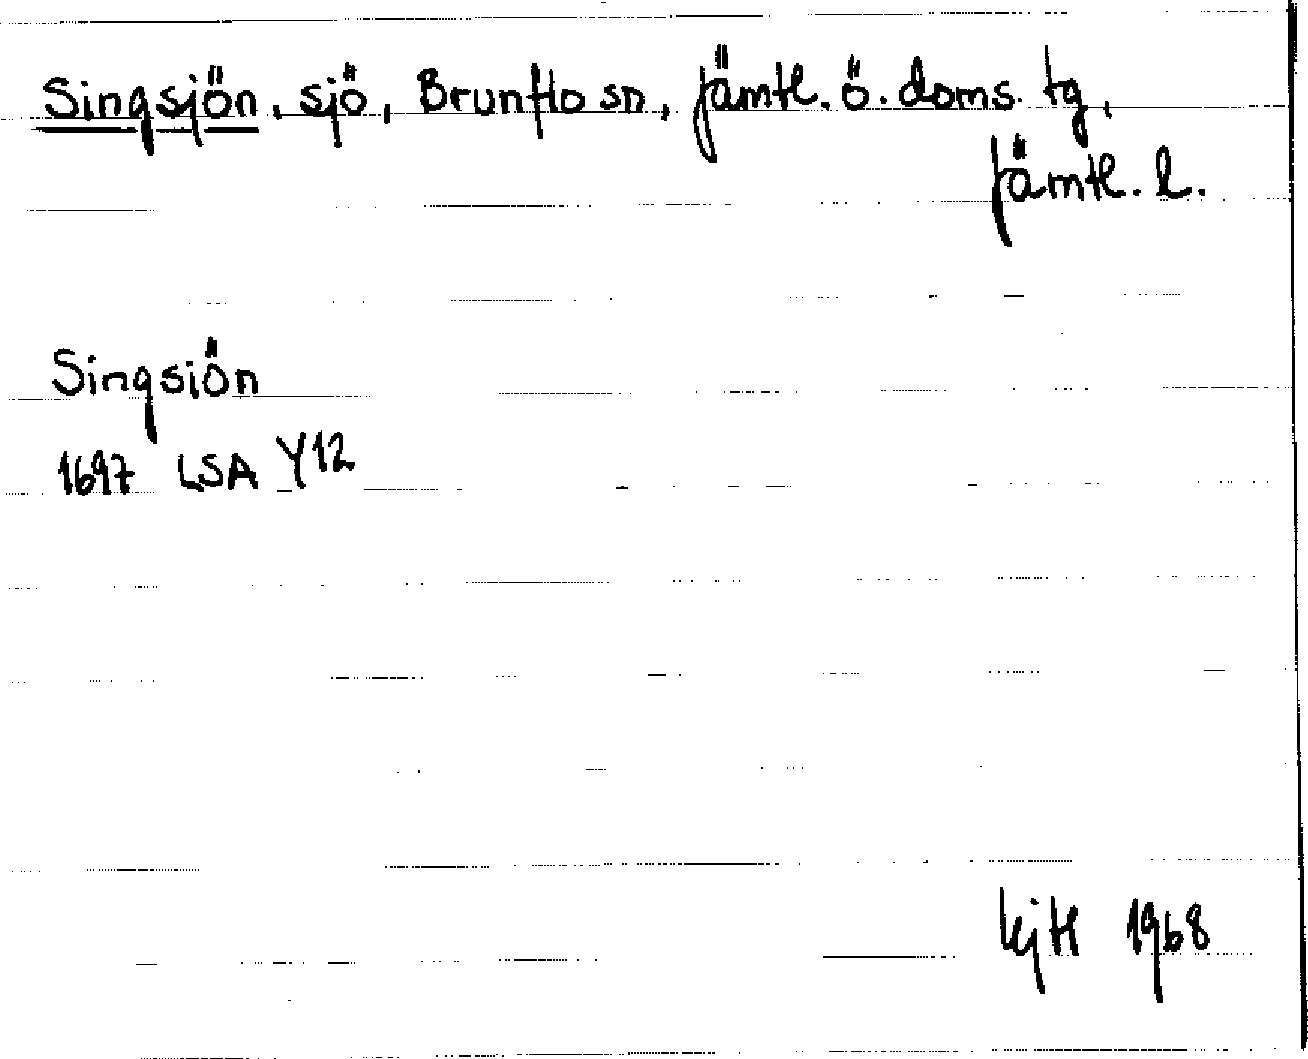 Singsjön, sjö, Brunflo sn, Jämtl. ö. doms. tg,
Jämtl. l.
Singsiön
1697 LSA Y12
1968